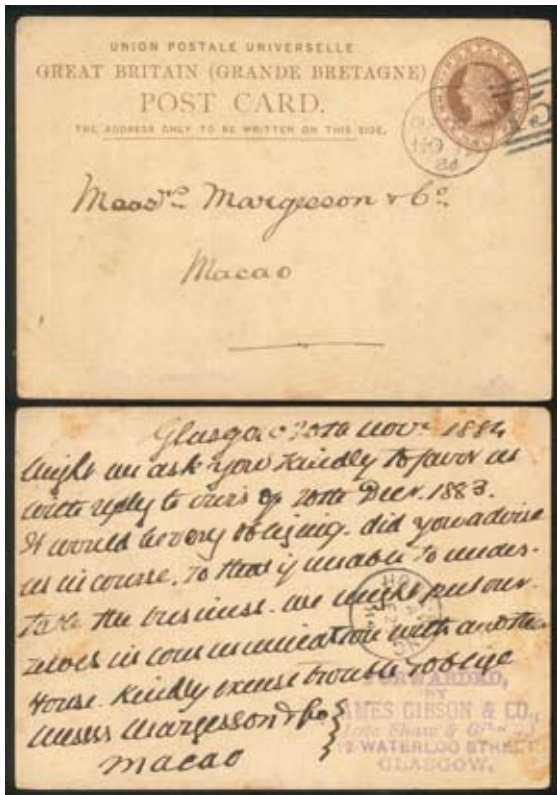 UNION POSTALE UNIVERSELLE
GREAT BRITAIN (GRANDE BRETAGNE)
POST CARD.
THE ADDRESS ONLY TO BE WRITTEN ON THIS SIDE.
NO
84
Messrs Margesson & Co.
Macao
Glasgow 20th Novr 1884
Might we ask you kindly to favor us
with reply to ours of 20th Decr. 1883.
It would be very obliging. did you advise
us in course, so that if unable to under-
take the business. we might put our-
selves in communication with another
House. Kindly excuse trouble & oblige
Messrs Margesson & Co
Macao
FORWARDED,
BY
JAMES GIBSON & CO.,
Late Shaw &
WATERLOO STREET
GLASGOW.